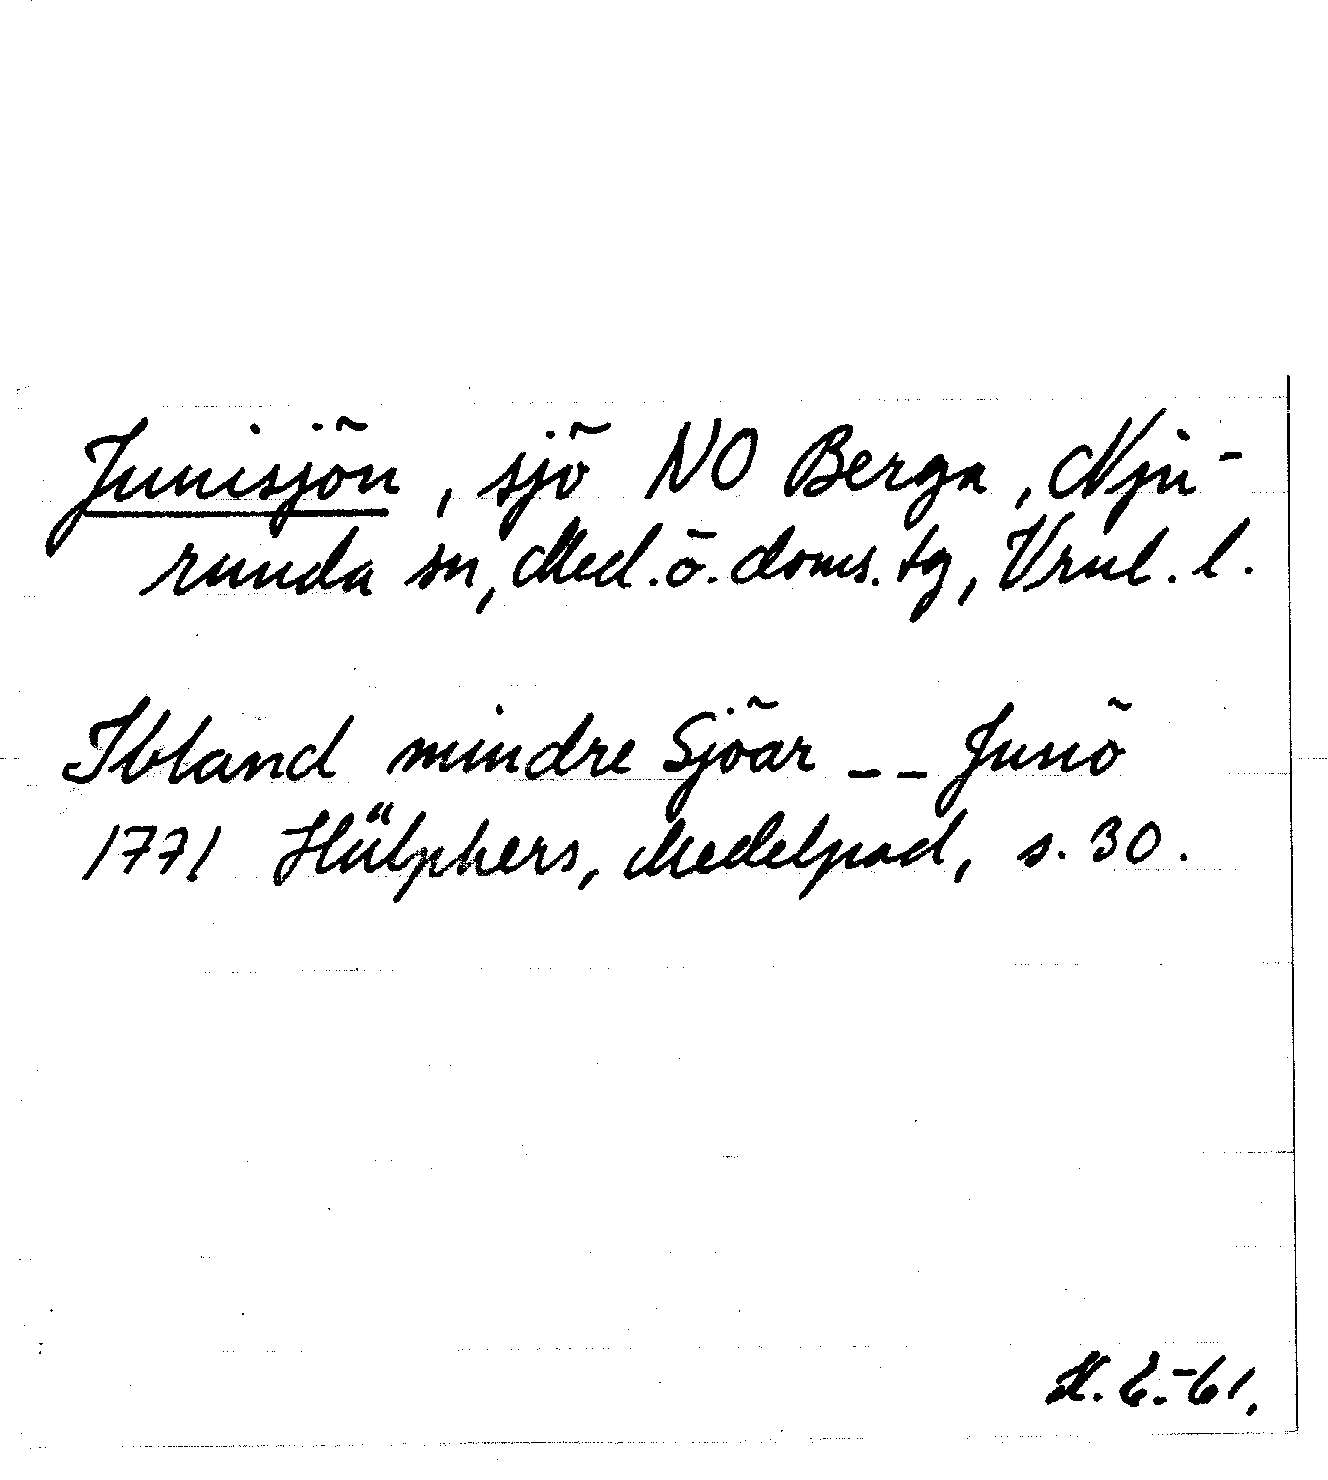 Junisjön, sjö NO Berga, Nju-
runda sn, Med. ö. doms. tg, Vrnl. l.
Ibland mindre Sjöar -- Juniö
1771 Hülphers, Medelpad, s. 30.
-61.